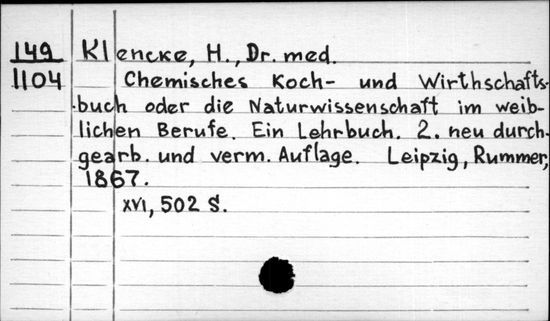 149 Klencke, H., Dr. med.
1104 Chemisches Koch- und Wirthschafts-
buch oder die Naturwissenschaft im weib-
lichen Berufe. Ein Lehrbuch. 2. neu durch-
gearb. und verm. Auflage. Leipzig, Rummer,
1867.
XVI, 502 S.